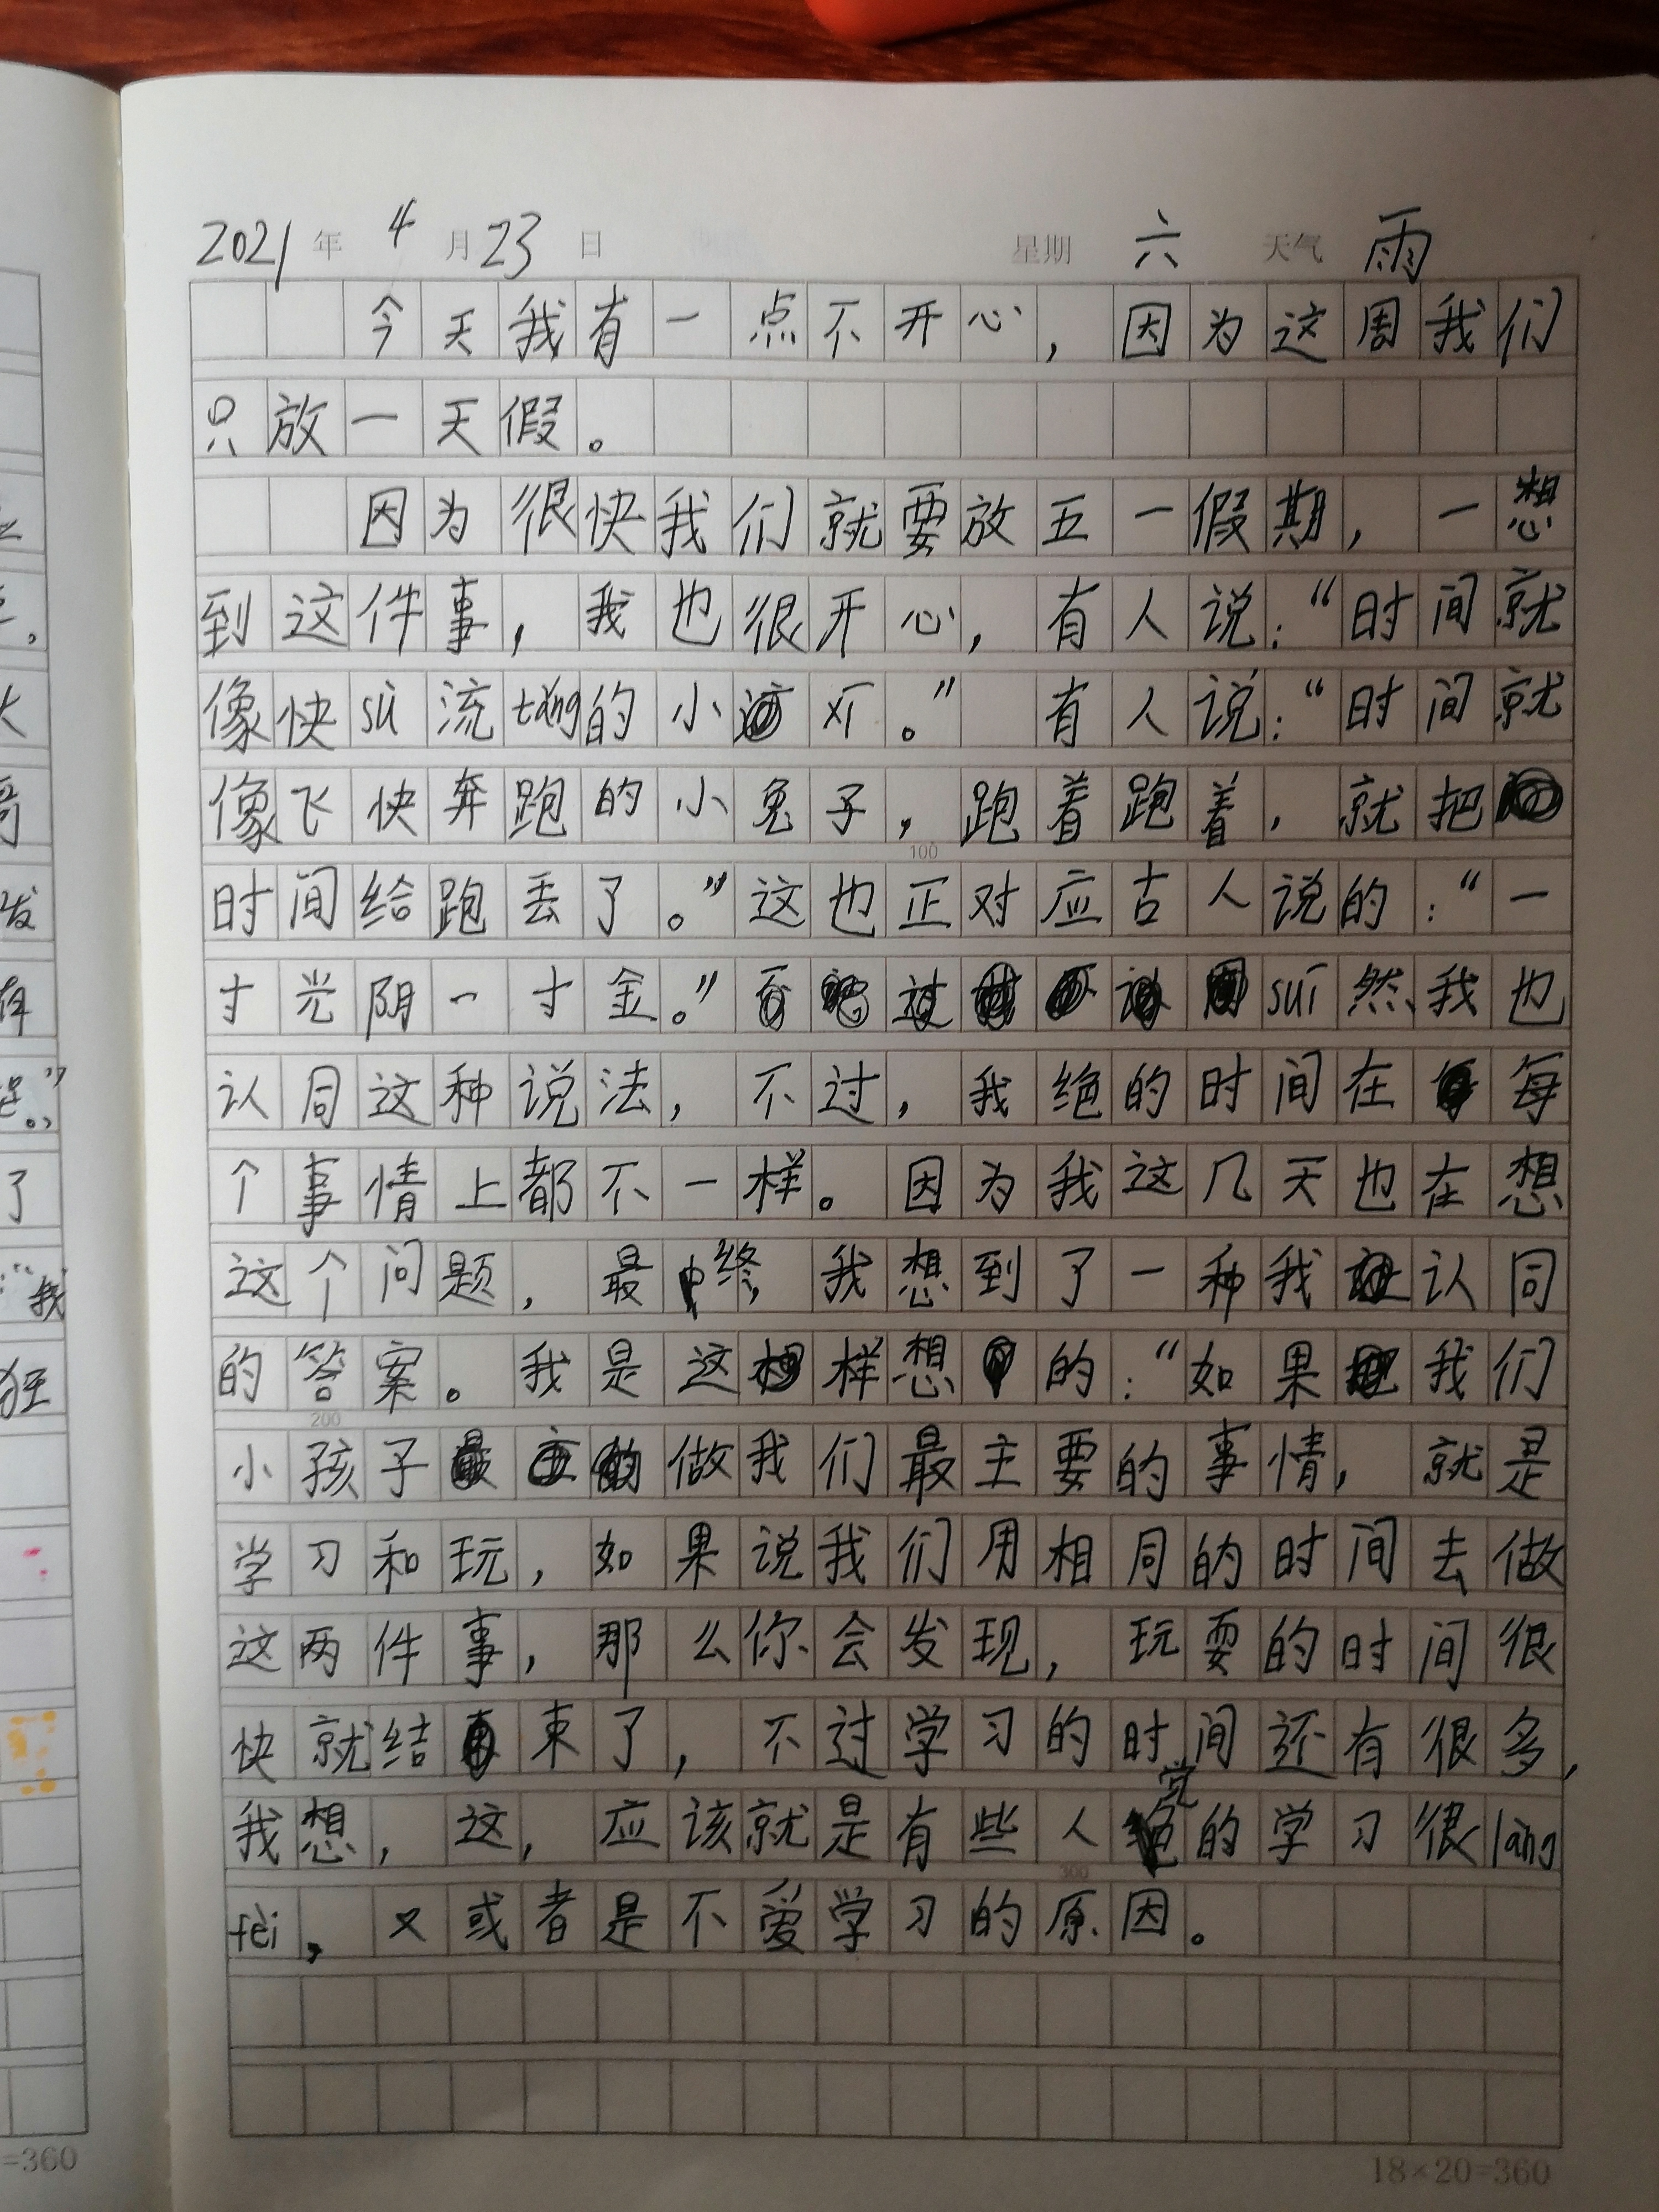 2021年4月23日 星期六 天气雨
今天我有一点不开心，因为这周我们
只放一天假。
因为很快我们就要放五一假期，一想
到这件事，我也很开心，有人说：“时间就
像快sù流tǎng的小河。”有人说：“时间就
像飞快奔跑的小兔子，跑着跑着，就把
100
时间给跑丢了。”这也正对应古人说的：“一
寸光阴一寸金。”suī然我也
认同这种说法，不过，我绝的时间在每
个事情上都不一样。因为我这几天也在想
这个问题，最终，我想到了一种我认同
的答案。我是这样想的：“如果我们
200
小孩子做我们最主要的事情，就是
学习和玩，如果说我们用相同的时间去做
这两件事，那么你会发现，玩耍的时间很
快就结束了，不过学习的时间还有很多，
我想，这，应该就是有些人觉的学习很làng
300
fèi，又或者是不爱学习的原因。
=360
18×20=360